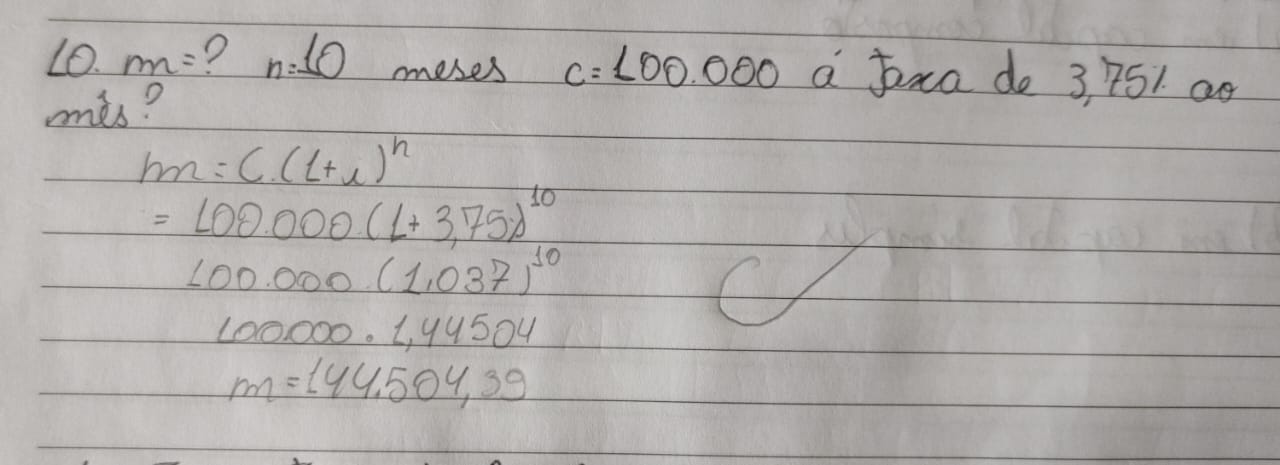 10. m=? n=10 meses c=100.000 á taxa de 3,75% ao
mês?
m=C.(1+i)ⁿ
= 100.000.(1+3,75%)¹⁰
100.000 (1,037)¹⁰
100.000 . 1,44504
m=144.504,39